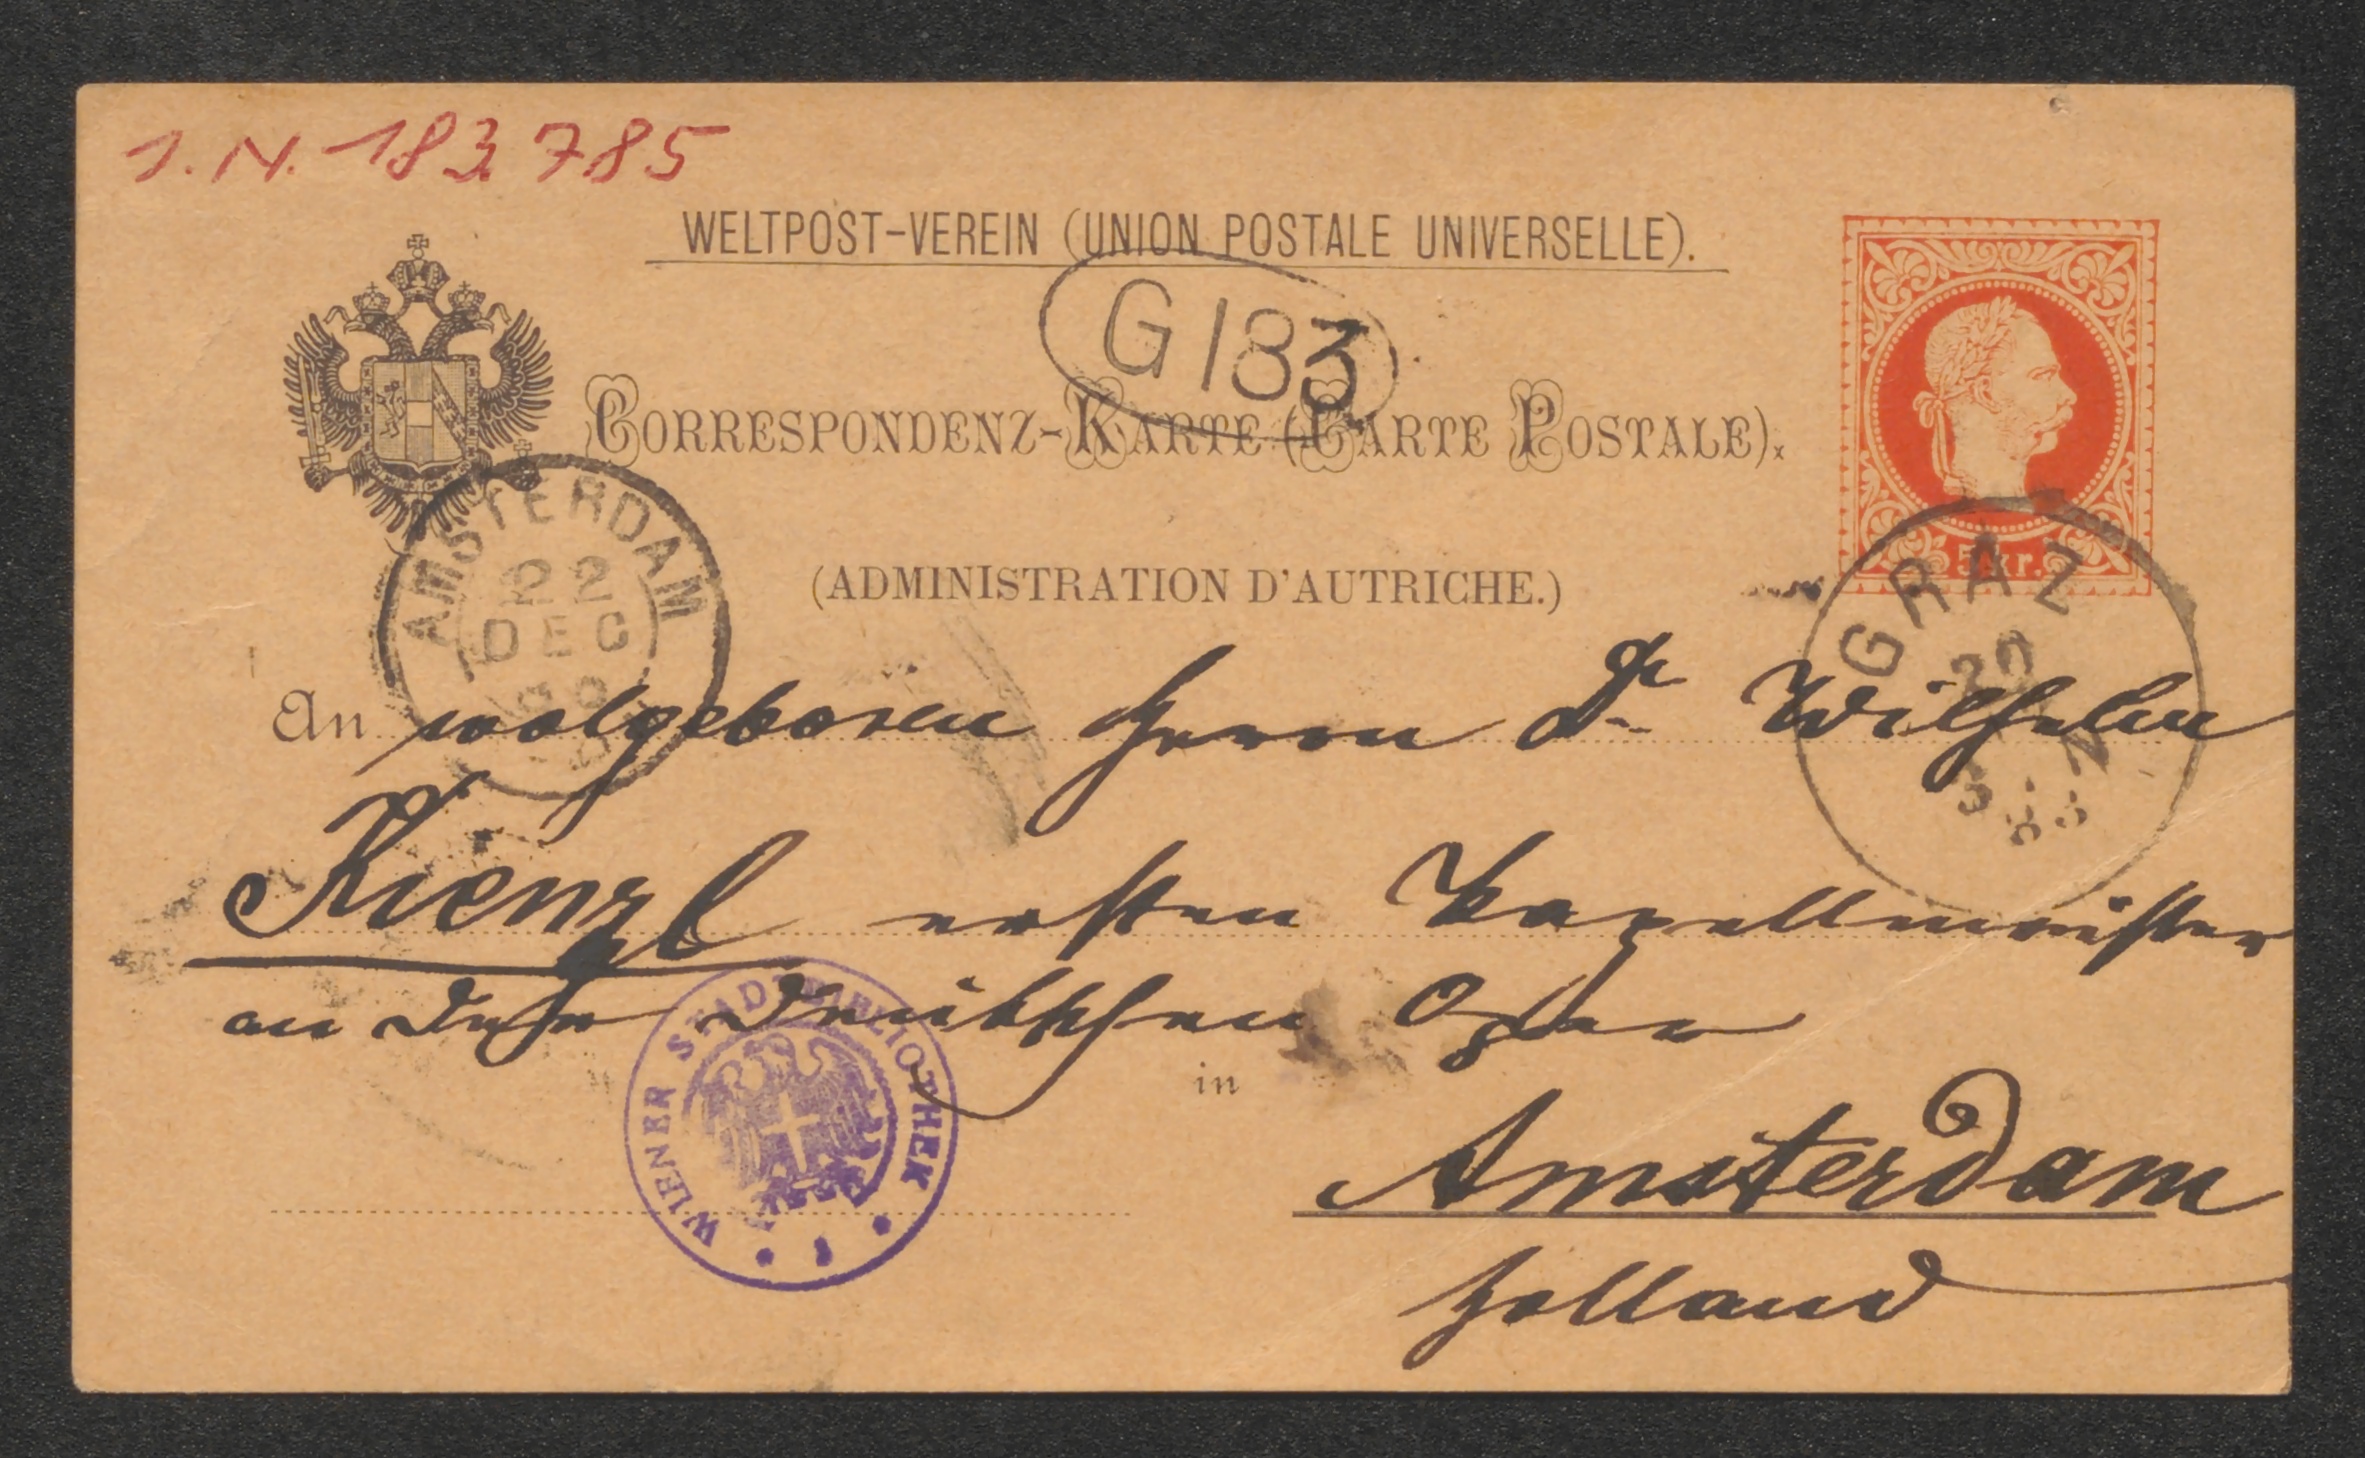 I.N. 183785
WELTPOST-VEREIN (UNION POSTALE UNIVERSELLE).
G 183
CORRESPONDENZ-KARTE (CARTE POSTALE).
(ADMINISTRATION D'AUTRICHE.)
5 kr.
AMSTERDAM
22
DEC
GRAZ
20
An wolgeboren Herrn Dr Wilhelm
Kienzl ersten Kapellmeister
an der deutschen Oper
in
Amsterdam
Holland
WIENER STADTBIBLIOTHEK